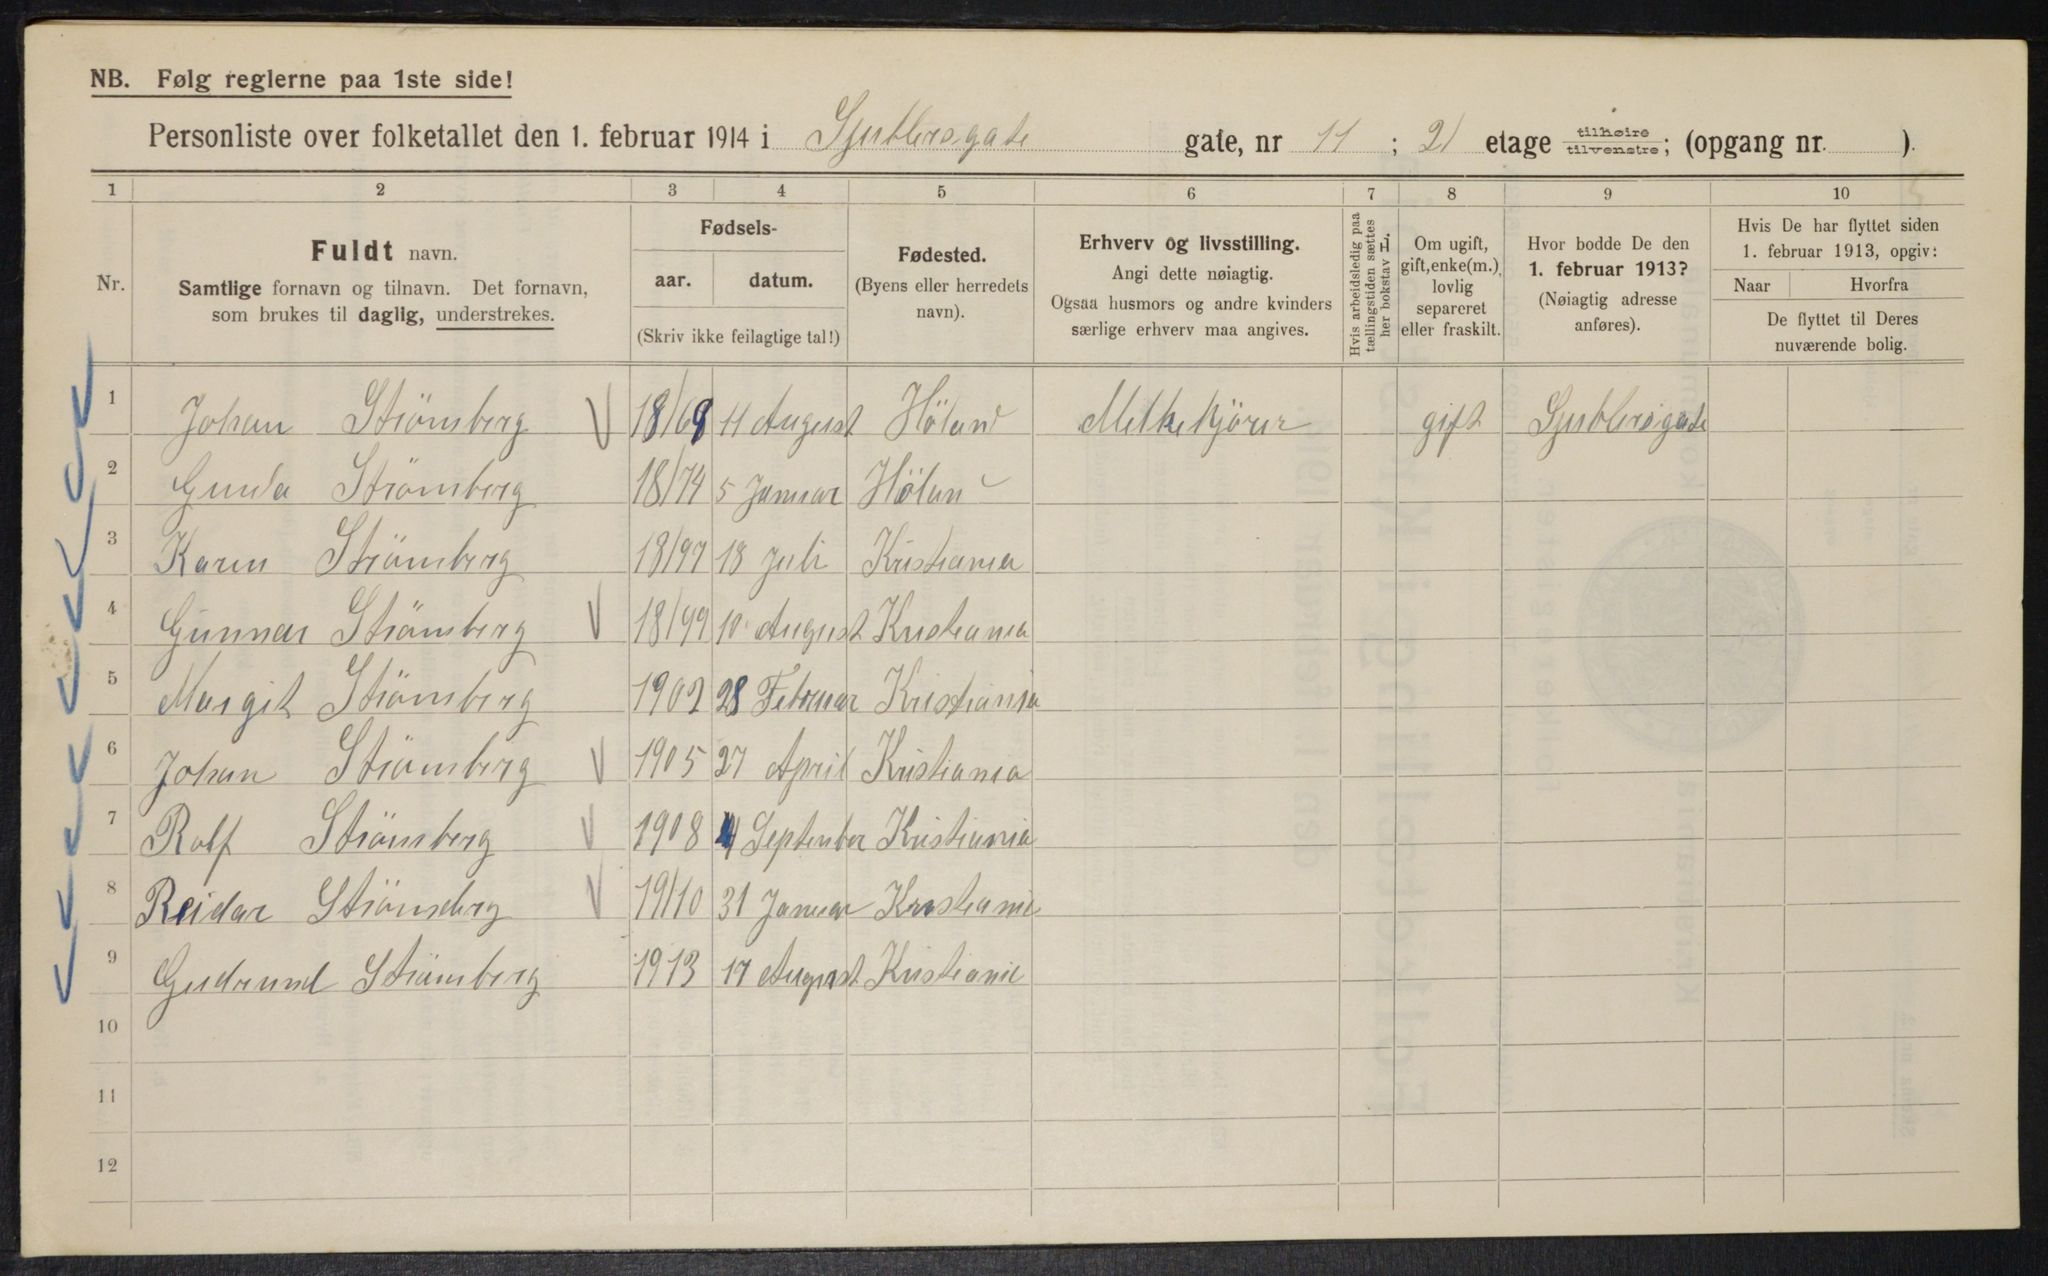 NB. Følg reglerne paa 1ste side!
Personliste over folketallet den 1. februar 1914 i Sjublersgade gate, nr 11 ; 2 etage tilhøire tilvenstre; (opgang nr. ).
1 2 3 4 5 6 7 8 9 10
Nr.
Fuldt navn.
Samtlige fornavn og tilnavn. Det fornavn,
som brukes til daglig, understrekes.
Fødsels-
aar. datum.
(Skriv ikke feilagtige tal!)
Fødested.
(Byens eller herredets
navn).
Erhverv og livsstilling.
Angi dette nøiagtig.
Ogsaa husmors og andre kvinders
særlige erhverv maa angives.
Hvis arbeidsledig paa
tællingstiden sættes
her bokstav L.
Om ugift,
gift, enke(m.),
lovlig
separeret
eller fraskilt.
Hvor bodde De den
1. februar 1913?
(Nøiagtig adresse
anføres).
Hvis De har flyttet siden
1. februar 1913, opgiv:
Naar Hvorfra
De flyttet til Deres
nuværende bolig.
1 Johan Strömberg 18/69 11 August Höland Melkekjörer gift Sjublersgade
2 Gunda Strömberg 18/74 5 Januar Höland
3 Karen Strömberg 18/97 18 Juli Kristiania
4 Gunnar Strömberg 18/99 10 August Kristiania
5 Margit Strömberg 1902 28 Februar Kristiania
6 Johan Strömberg 1905 27 April Kristiania
7 Rolf Strömberg 1908 4 September Kristiania
8 Reidar Strömberg 19/10 31 Januar Kristiania
9 Gudrund Strömberg 1913 17 August Kristiania
10
11
12